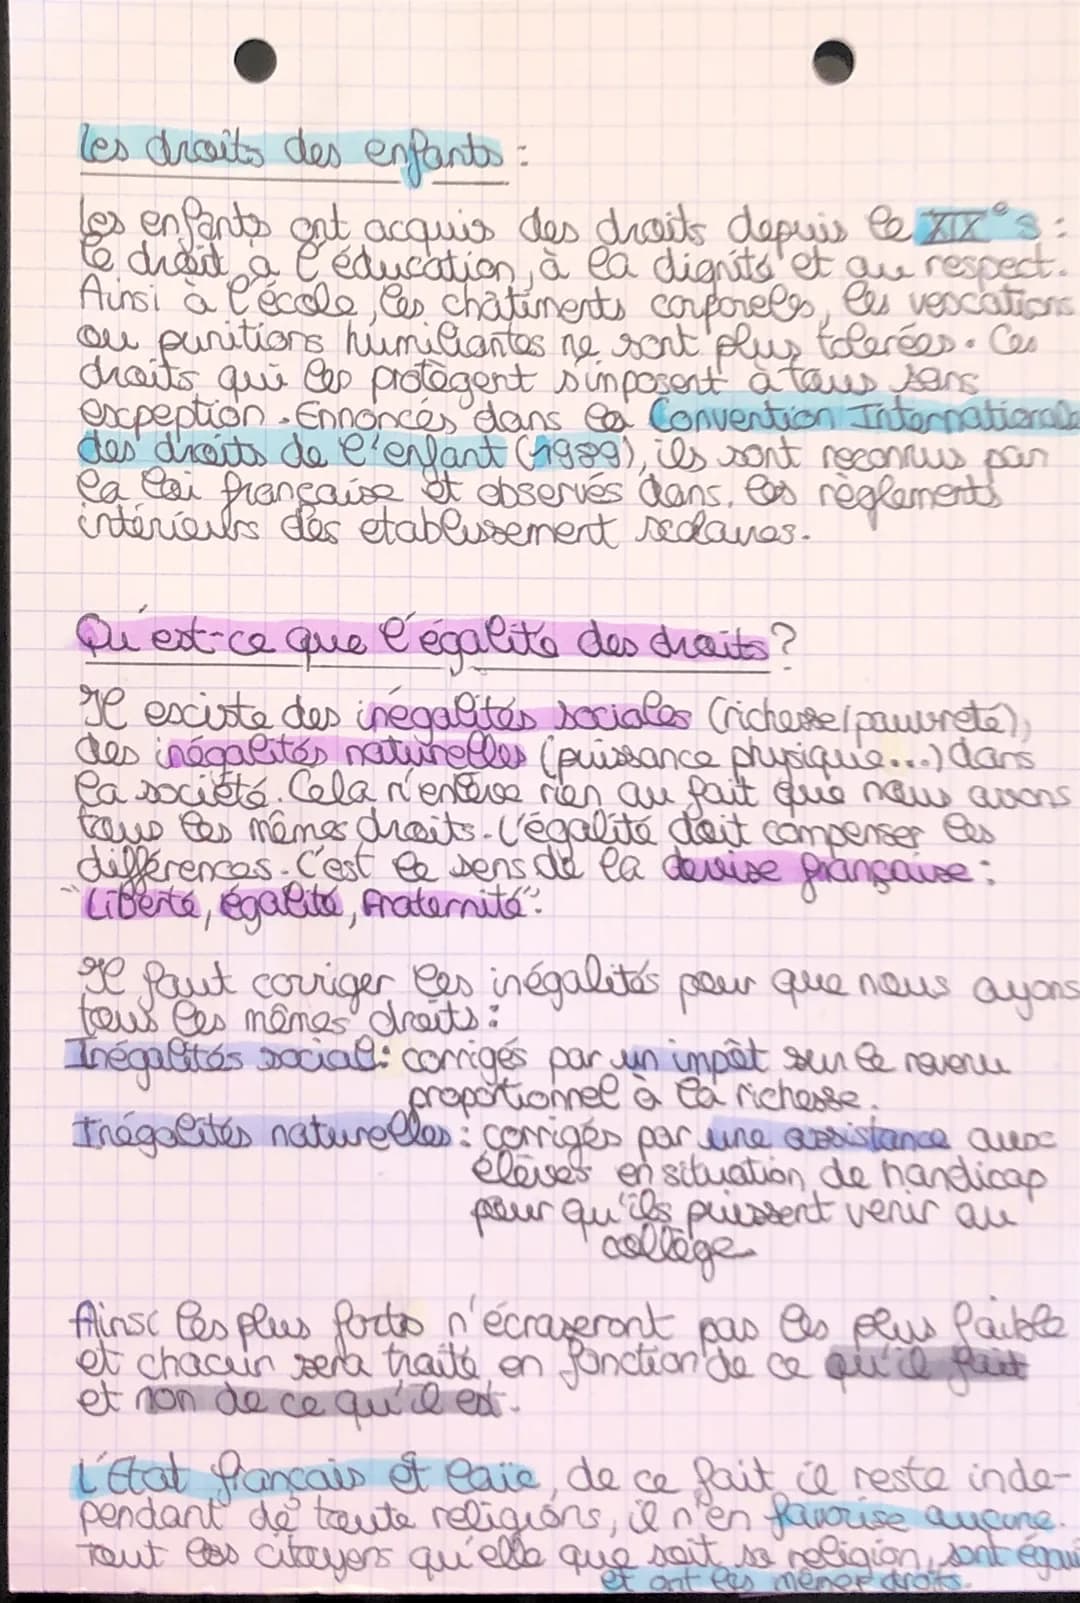 les droits des enfants :
les enfants ont acquis des droits depuis le XIX°s :
le droit a l'éducation, à la dignité et au respect.
Ainsi à l'école, les châtiments corporels, les vexcations
ou punitions humiliantes ne sont plus tolerées. Ces
droits qui les protègent s'imposent à tous sans
excpeption. Ennoncés dans la Convention Internationale
des droits de l'enfant (1989), ils sont reconnus par
la loi française et observés dans les règlements
intérieurs des etablissement scolaires.
Qu'est-ce que l'égalité des droits ?
Il exciste des inégalités sociales (richesse/pauvreté),
des inégalités naturelles (puissance physique...) dans
la société. Cela n'enlève rien au fait que nous avons
tous les mêmes droits. L'égalité doit compenser les
différences. C'est le sens de la devise française :
"Liberté, égalité, fraternité".
Il faut corriger les inégalités pour que nous ayons
tous les mêmes droits :
Inégalités social : corrigés par un impôt sur le revenu
proportionnel à la richesse.
Inégalités naturelles : corrigés par une assistance aux
élèves en situation de handicap
pour qu'ils puissent venir au
collège
Ainsi les plus forts n'écraseront pas les plus faible
et chacun sera traité en fonction de ce qu'il fait
et non de ce qu'il est.
L'Etat français et laïc, de ce fait il reste inde-
pendant de toute religions, il n'en favorise aucune.
Tout les citoyens qu'elle que soit sa religion, sont égaux
et ont les mêmes droits.